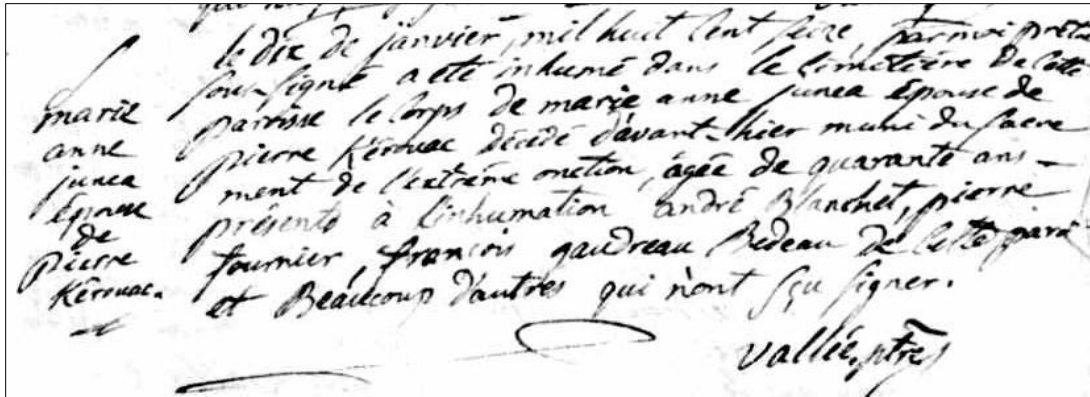 marie
anne
junea
épouse
de
pierre
Kérouac.
le dix de janvier, mil huit cent seize, par moi prêtre
sous-signé a eté inhumé dans le cimetière de cette
paroisse le corps de marie anne junea épouse de
pierre Kérouac décédé d'avant-hier muni du sacre
ment de l'extrême onction, agée de quarante ans -
présents à l'inhumation andré Blanchet, pierre
fournier, françois gaudreau Bedeau de cette paroi
et Beaucoup d'autres qui n'ont sçu signer.
Vallée, ptre